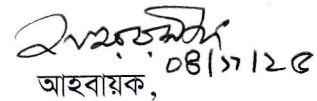 ০৪/১১/২৫
আহবায়ক,